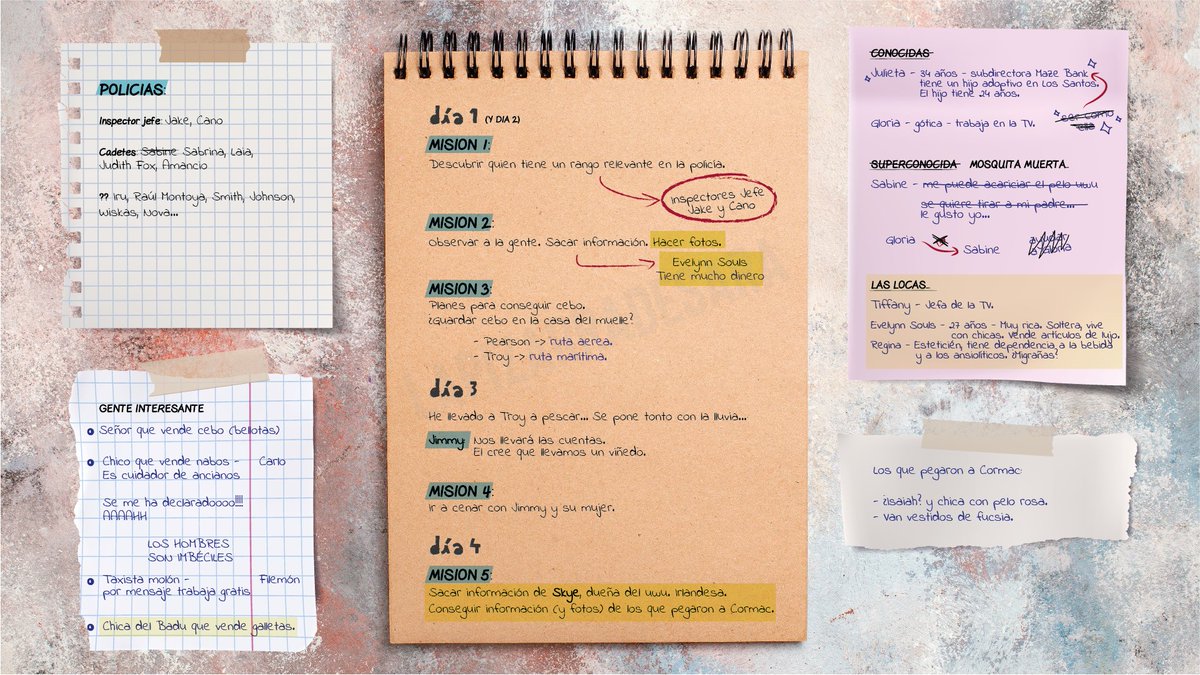 POLICIAS:
Inspector jefe: Jake, Cano
Cadetes: Sabine Sabrina, Laia,
Judith Fox, Amancio
?? Iru, Raúl Montoya, Smith, Johnson,
Wiskas, Nova...
GENTE INTERESANTE
Señor que vende cebo (bellotas)
Chico que vende nabos - Carlo
Es cuidador de ancianos
Se me ha declaradoooo!!!!
AAAAHH
LOS HOMBRES
SON IMBÉCILES
Taxista molón - Filemón
por mensaje trabaja gratis
Chica del Badu que vende galletas.
día 1 (Y DIA 2)
MISION 1:
Descubrir quien tiene un rango relevante en la policía.
Inspectores Jefe
Jake y Cano
MISION 2:
Observar a la gente. Sacar información. Hacer fotos.
Evelynn Souls
Tiene mucho dinero
MISION 3:
Planes para conseguir cebo.
¿Guardar cebo en la casa del muelle?
- Pearson -> ruta aerea.
- Troy -> ruta marítima.
día 3
He llevado a Troy a pescar... Se pone tonto con la lluvia...
Jimmy: Nos llevará las cuentas.
El cree que llevamos un viñedo.
MISION 4:
Ir a cenar con Jimmy y su mujer.
día 4
MISION 5:
Sacar información de Skye, dueña del uwu. Irlandesa.
Conseguir información (y fotos) de los que pegaron a Cormac.
CONOCIDAS
Julieta - 34 años - subdirectora Maze Bank
tiene un hijo adoptivo en Los Santos.
El hijo tiene 24 años.
ser como
Gloria - gótica - trabaja en la TV.
SUPERCONOCIDA MOSQUITA MUERTA.
Sabine - me puede acariciar el pelo uwu
se quiere tirar a mi padre...
le gusto yo...
Gloria Sabine
LAS LOCAS...
Tiffany - Jefa de la TV.
Evelynn Souls - 27 años - Muy rica. Soltera, vive
con chicas. Vende artículos de lujo.
Regina - Esteticién, tiene dependencia a la bebida
y a los ansiolíticos. ¿Migrañas?
Los que pegaron a Cormac:
- ¿Isaiah? y chica con pelo rosa.
- Van vestidos de fucsia.